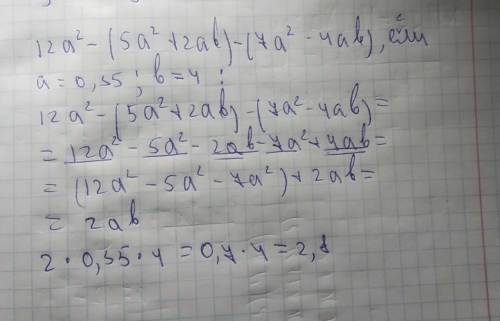 12a² - (5a² + 2ab) - (7a² - 4ab), если
a = 0,35 ; b = 4 :
12a² - (5a² + 2ab) - (7a² - 4ab) =
= 12a² - 5a² - 2ab - 7a² + 4ab =
= (12a² - 5a² - 7a²) + 2ab =
= 2ab
2 · 0,35 · 4 = 0,7 · 4 = 2,8